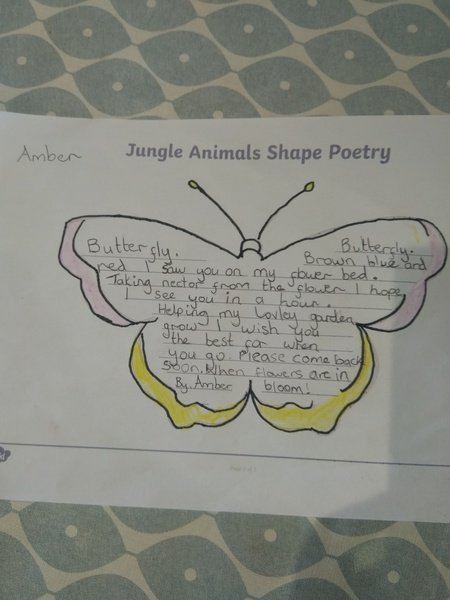 Amber
Jungle Animals Shape Poetry
Butterfly. Butterfly.
Brown, blue and
red I saw you on my flower bed.
Taking nector from the flower I hope,
I see you in a hour.
Helping my Lovley garden
grow I wish you
the best for when
you go. Please come back
soon. When flowers are in
By. Amber bloom!